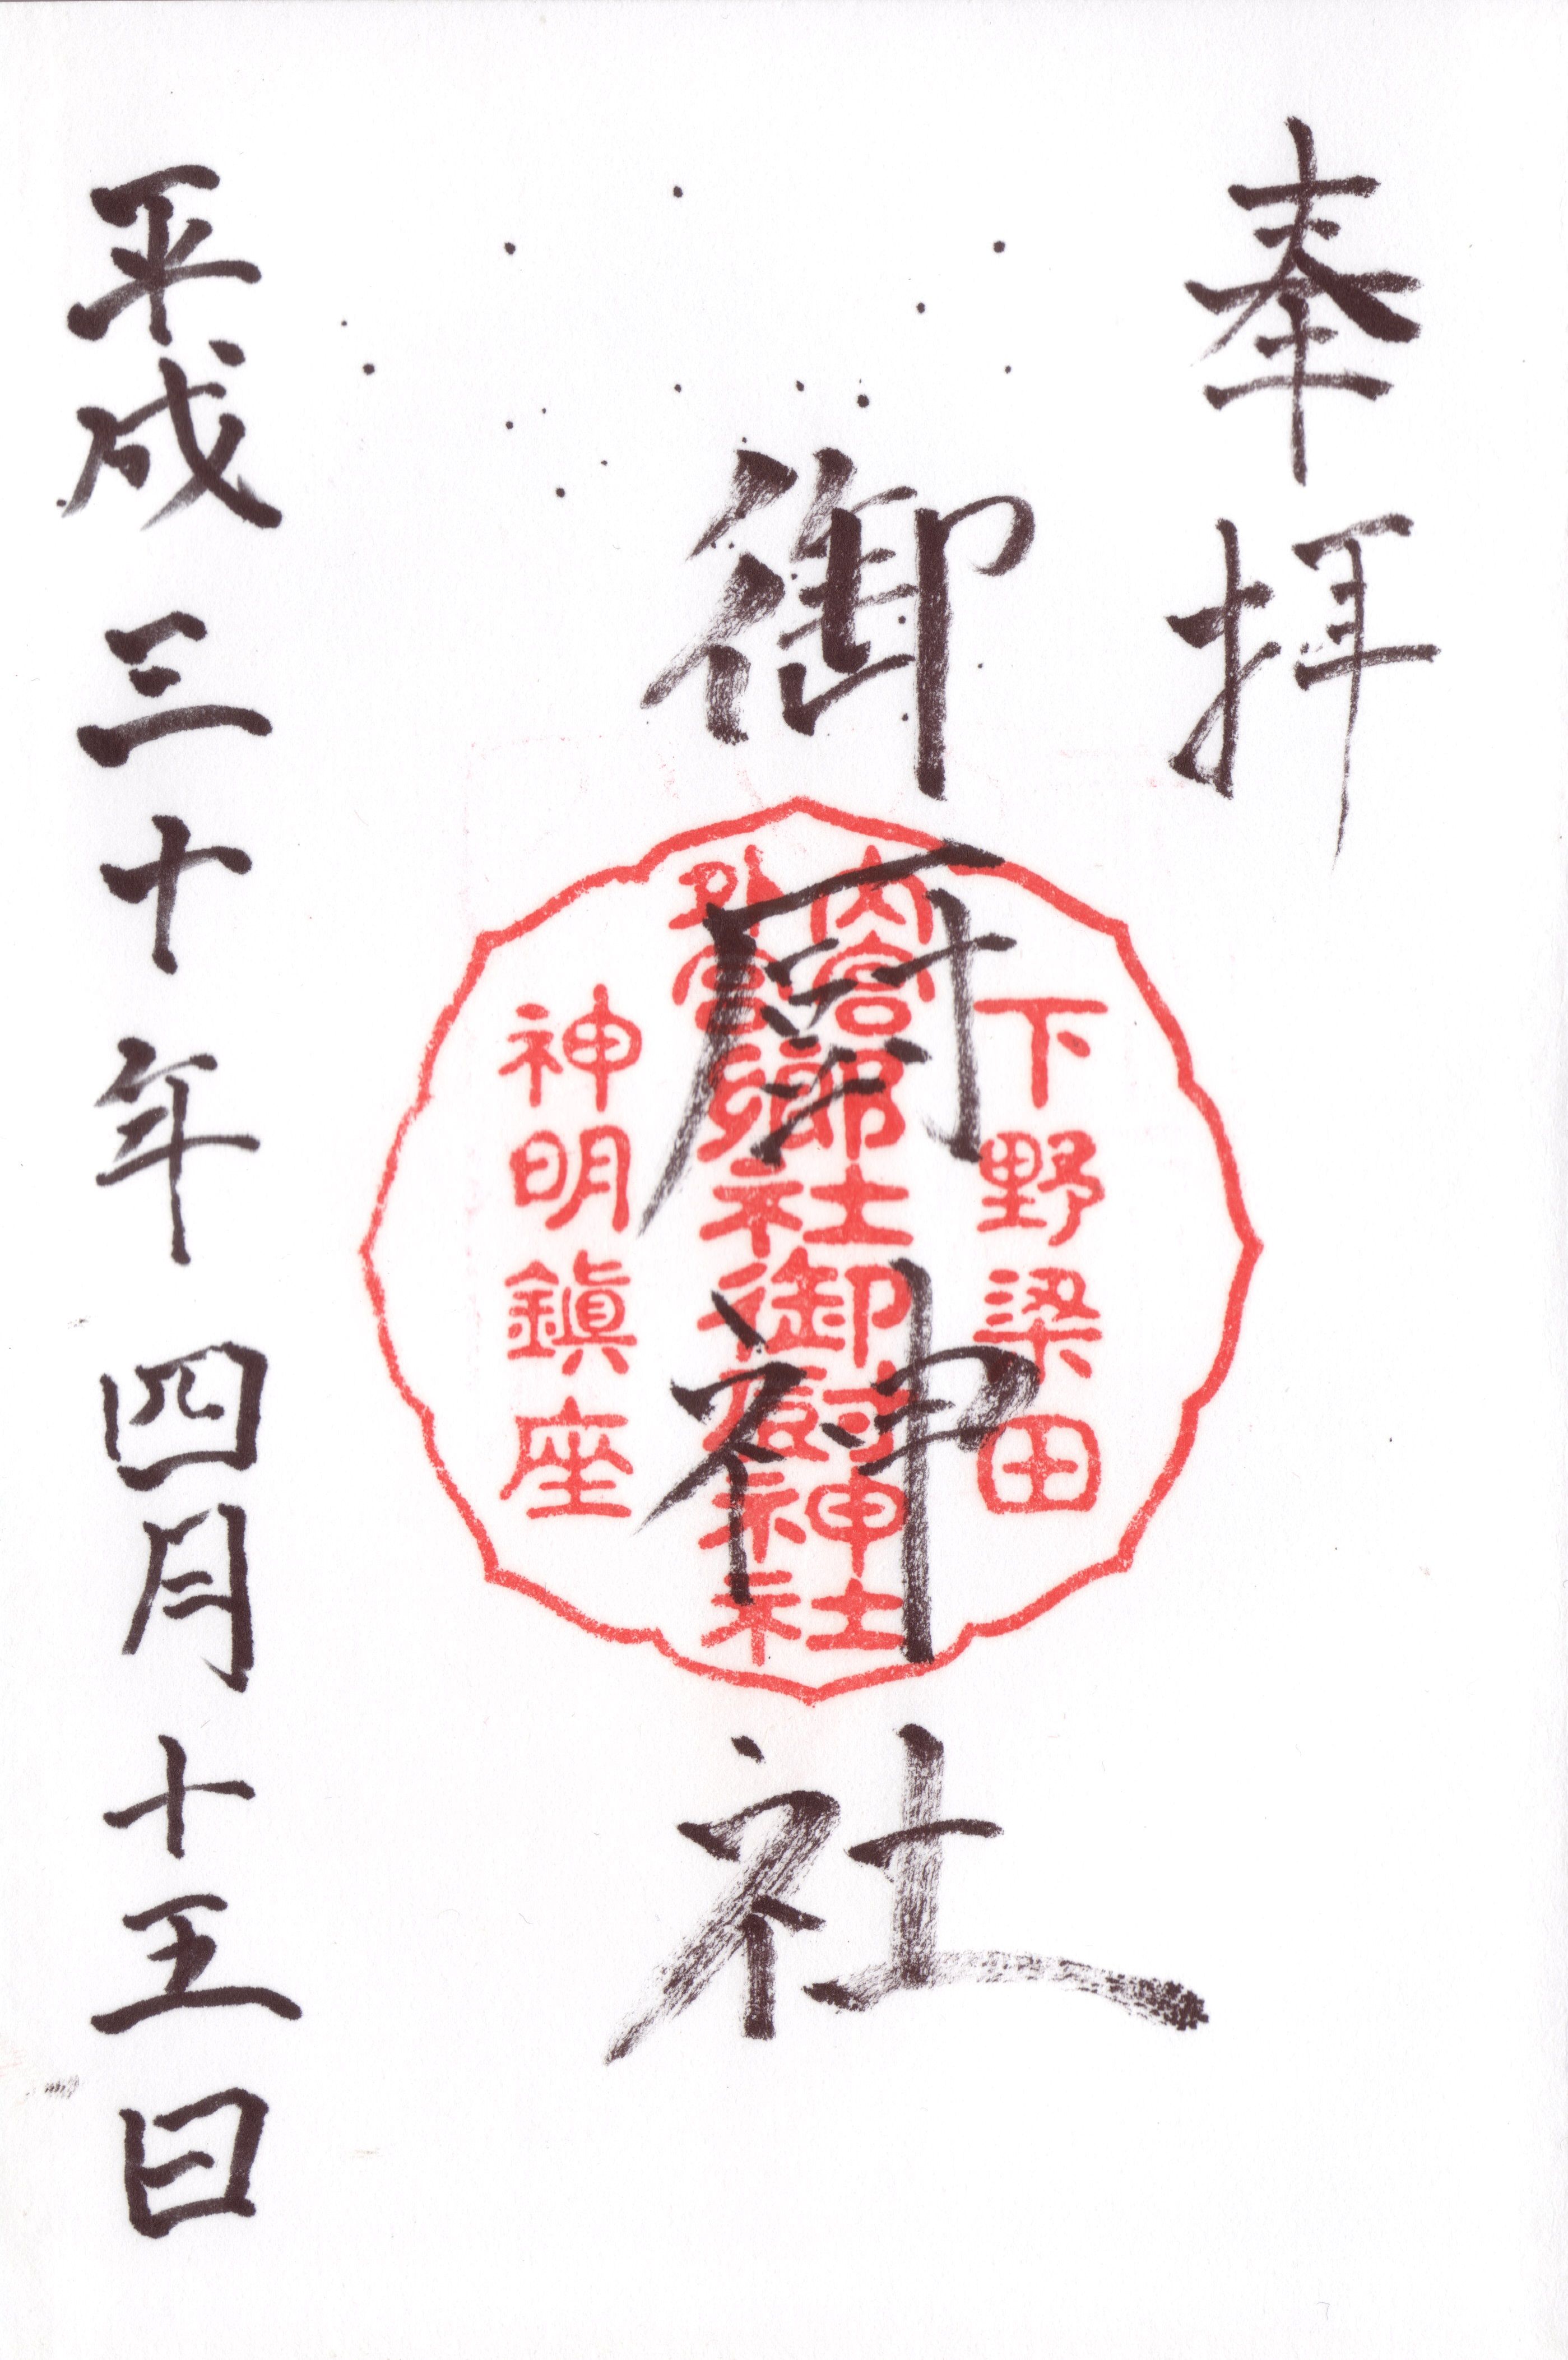 奉拝
御厨神社
下野梁田
内宮
外宮
郷社御厨神社
神明鎮座
平成三十年四月十五日